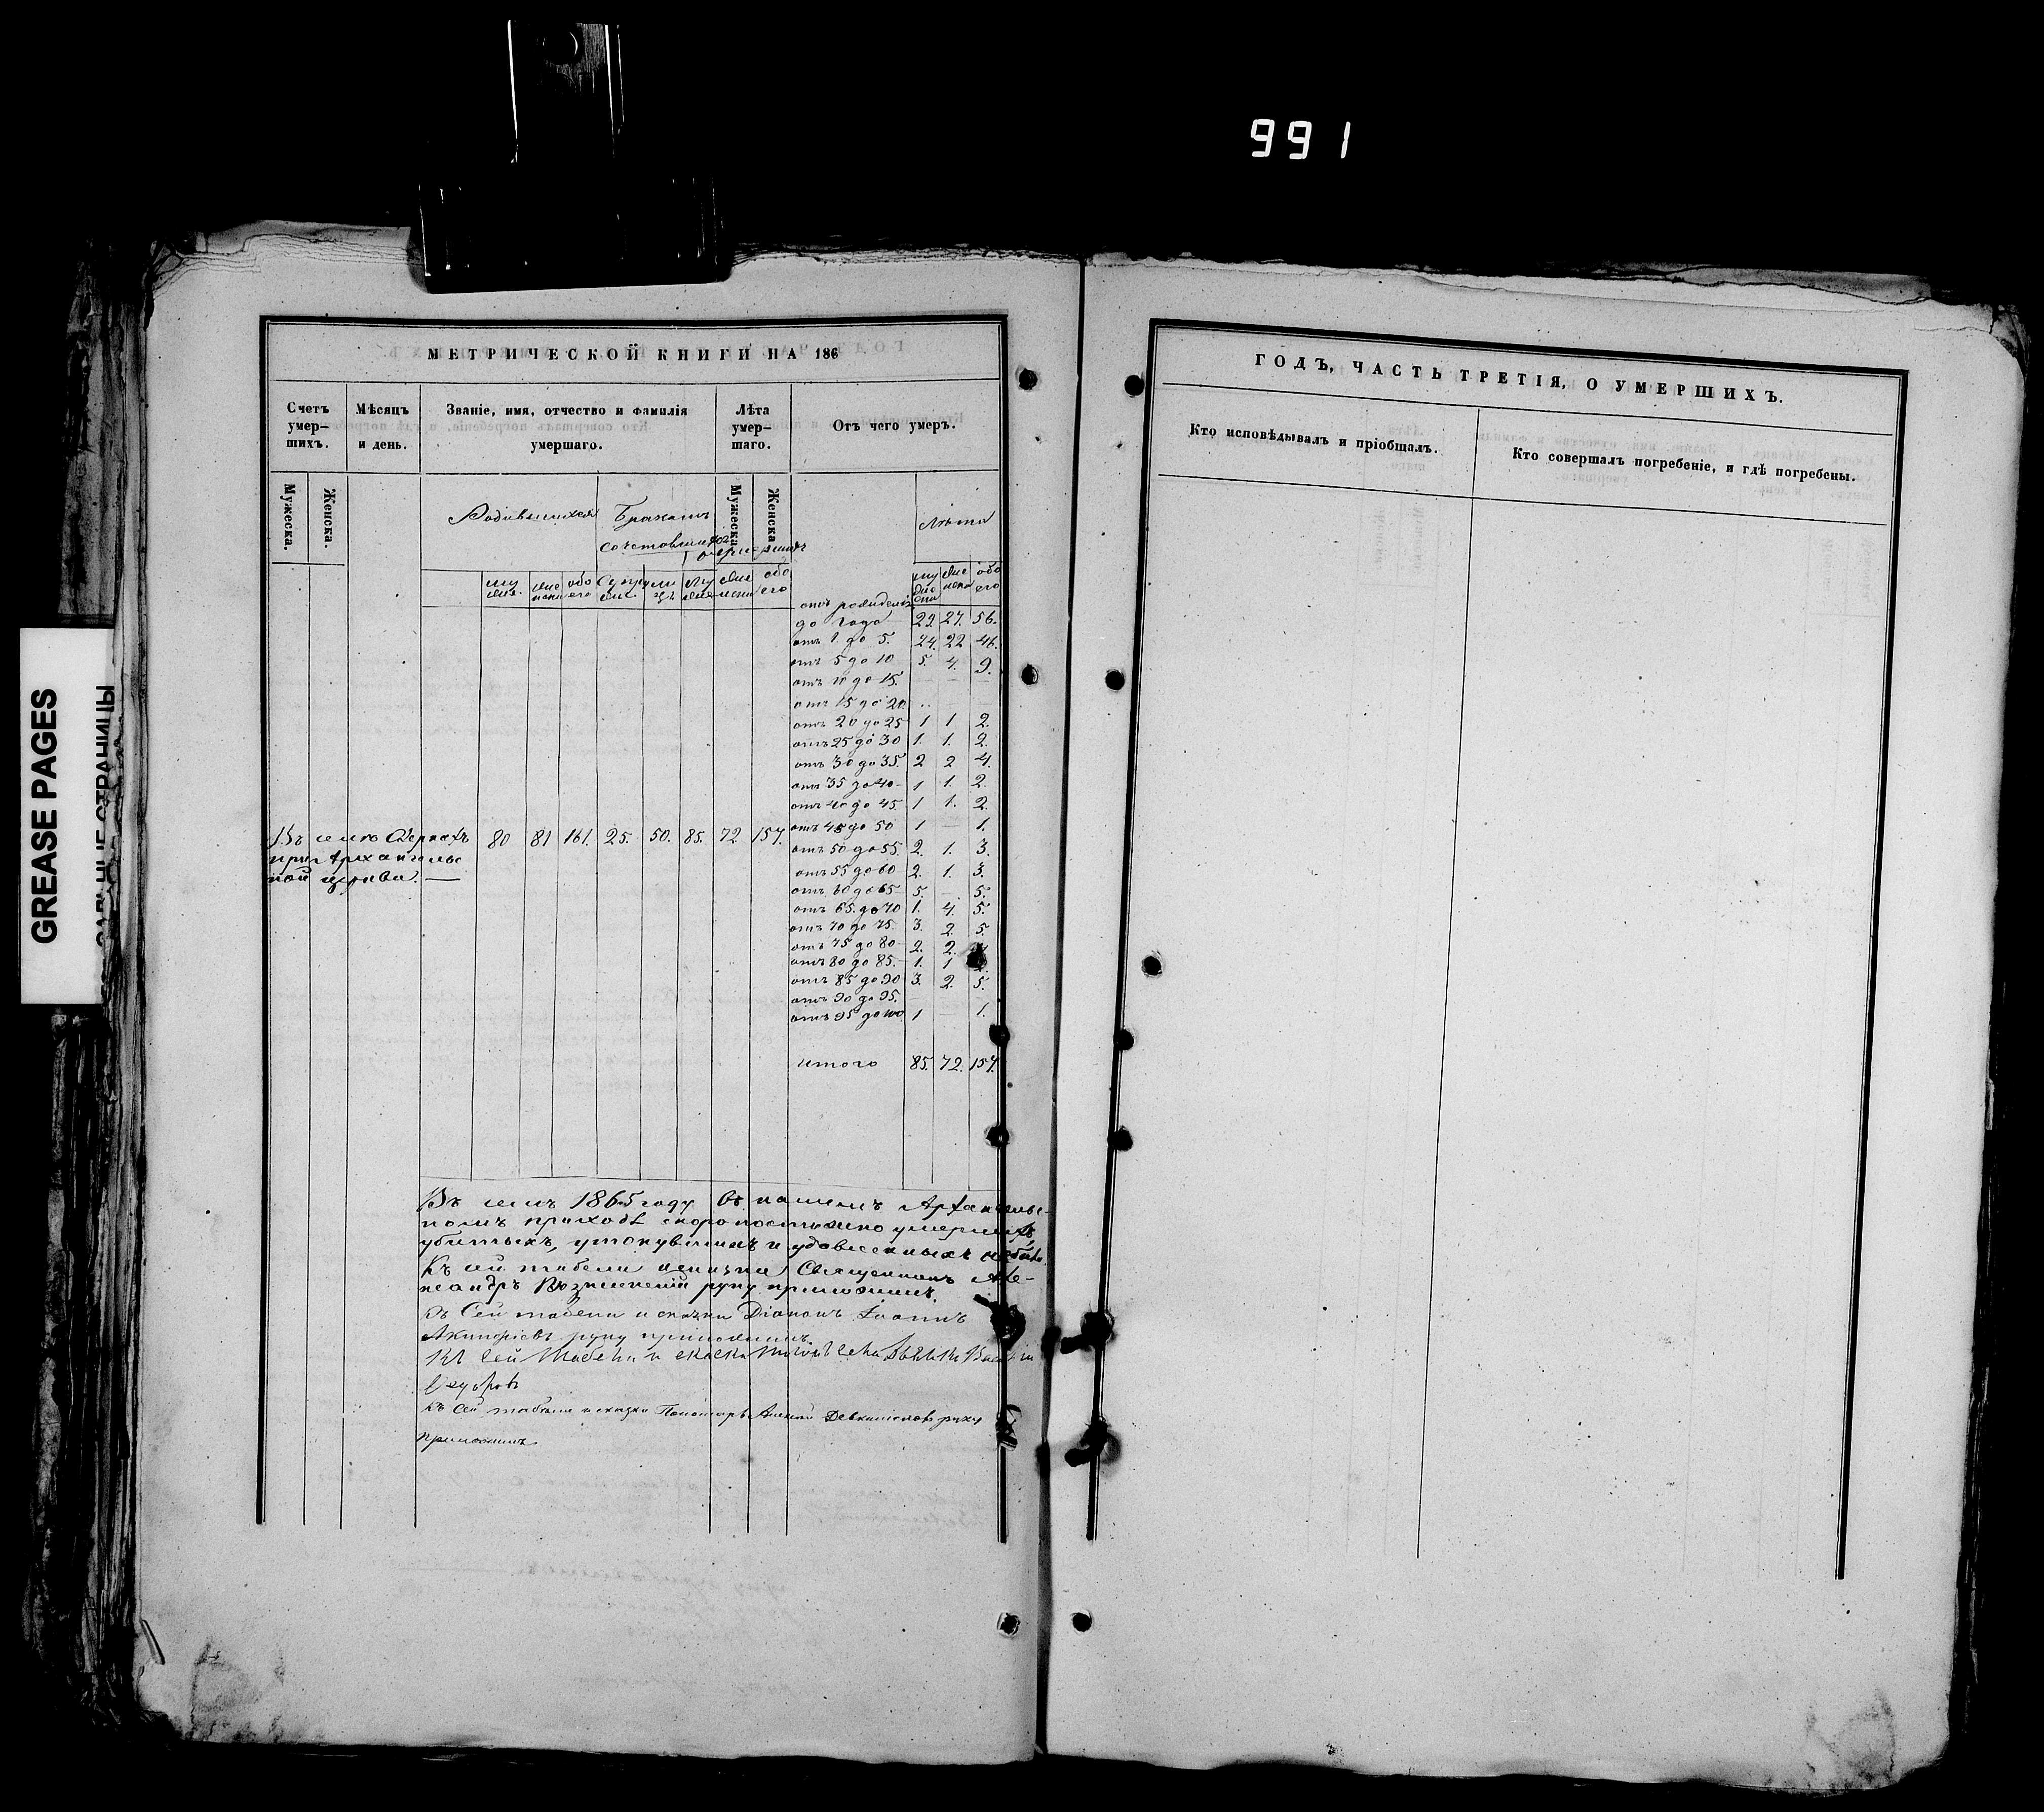 991
GREASE PAGES
МЕТРИЧЕСКОЙ КНИГИ НА 186
Счетъ умер-шихъ.
Мѣсяцъ и день.
Званіе, имя, отчество и фамилія умершаго.
Лѣта умер-шаго.
Отъ чего умеръ.
Мужеска.
Женска.
Родившихся
Бракомъ
Мужеска
Женска
Лѣта
сочетавшихся
отъ рожденія
до года 29. 27. 56.
отъ 1 до 5. 24. 22 46.
отъ 5 до 10 5. 4. 9.
отъ 10 до 15. — — —
отъ 15 до 20.
отъ 20 до 25 1 1 2.
отъ 25 до 30 1. 1. 2.
отъ 30 до 35. 2 2 4.
отъ 35 до 40 1 1. 2.
отъ 40 до 45. 1 1. 2.
отъ 45 до 50 1 — 1.
Въ селѣ
80 81 161. 25. 50. 85. 72 157.
при Архангельс
кой церкви. —
отъ 50 до 55. 2. 1. 3.
отъ 55 до 60 2. 1. 3.
отъ 60 до 65 5. — 5.
отъ 65 до 70 1. 4. 5.
отъ 70 до 75. 3. 2. 5.
отъ 75 до 80 2. 2.
отъ 80 до 85. 1. 1
отъ 85 до 90 3. 2. 5.
отъ 90 до 95.
отъ 95 до 100 1 — 1.
итого 85. 72. 157.
Въ семъ 1865 году въ нашемъ Архангельс-
комъ приходѣ скоропостижно умершихъ,
убитыхъ, утонувшихъ и удавленныхъ небыло.
Къ сей табели и сказки Священникъ Але-
ксандръ Вознесенскій руку приложилъ.
Къ Сей табели и сказки Діаконъ Іоаннъ
руку приложилъ.
Къ сей табели и скаски
Къ сей табели и сказки Пономарь Алексей руку
приложилъ
ГОДЪ, ЧАСТЬ ТРЕТІЯ, О УМЕРШИХЪ.
Кто исповѣдывалъ и пріобщалъ.
Кто совершалъ погребеніе, и гдѣ погребены.